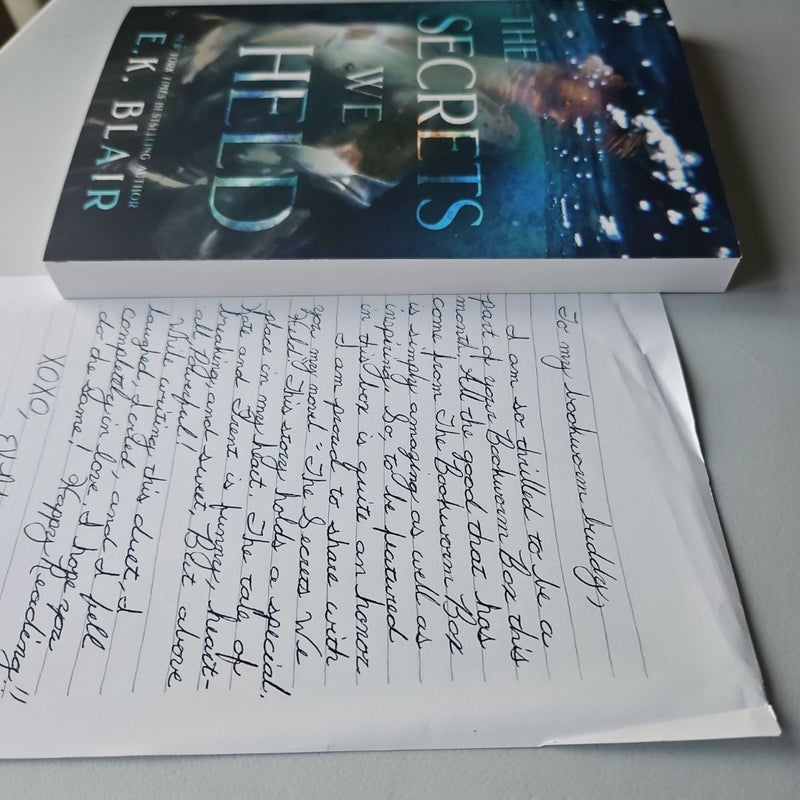 THE
SECRETS
WE
HELD
NEW YORK TIMES BESTSELLING AUTHOR
E.K. BLAIR
To my bookworm buddy,
I am so thrilled to be a
part of your Bookworm Box this
month. All the good that has
come from The Bookworm Box
is simply amazing as well as
inspiring. So to be featured
in this box is quite an honor.
I am proud to share with
you my novel - The Secrets We
Held. This story holds a special
place in my heart. The tale of
and Trent is funny, heart-
breaking, and sweet, BUT above
all, Powerful!
While writing this duet, I
laughed, I cried, and I fell
completely in love. I hope you
do the same! Happy Reading!!
XOXO,